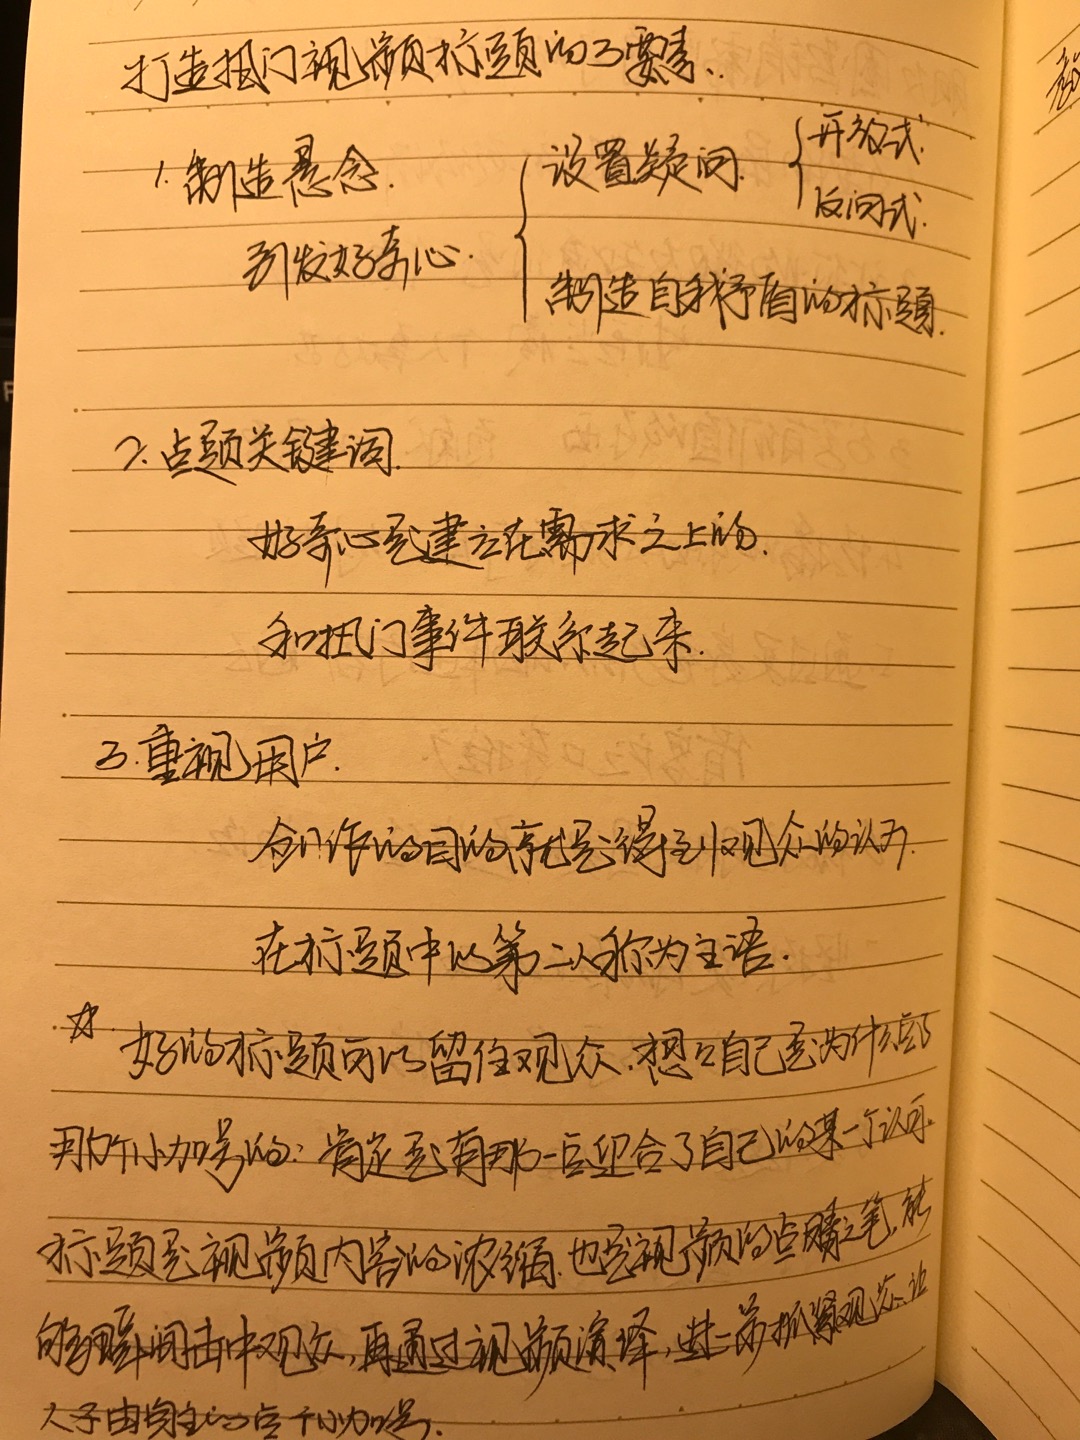 打造热门视频标题的3要素.
1. 制造悬念.
引发好奇心.
设置疑问.
开放式.
反问式.
制造自我矛盾的标题.
2. 点题关键词.
好奇心是建立在需求之上的.
和热门事件联系起来.
3. 重视用户.
创作的目的就是得到观众的认可.
在标题中以第二人称为主语.
☆ 好的标题可以留住观众. 想想自己是为什么点了
那个小加号的: 肯定是有那一点迎合了自己的某一个认可.
标题是视频内容的浓缩. 也是视频的点睛之笔. 能
够瞬间击中观众, 再通过视频演绎, 进一步抓紧观众. 让
人不由自主的点下小加号.